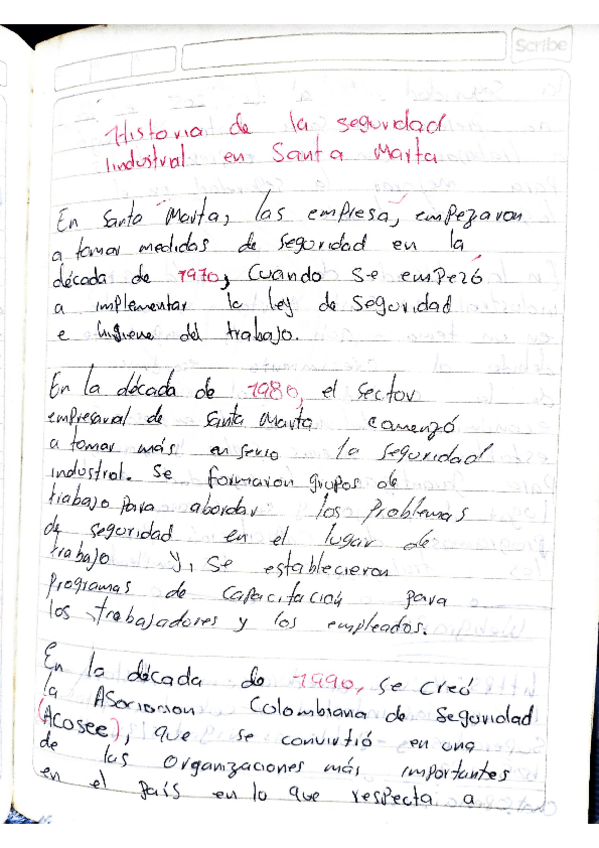 Scribe
Historia de la seguridad
Iindustrial en Santa Marta
En Santa Marta, las empresa, empezaron
a tomar medidas de seguridad en la
década de 1970, Cuando se empezó
a implementar la ley de seguridad
e higiene del trabajo.
En la década de 1980, el sector
empresarial de Santa Marta comenzó
a tomar más en serio la seguridad
industrial. Se formaron grupos de
trabajo para abordar los Problemas
de seguridad en el lugar de
trabajo y, se establecieron
Programas de capacitación para
los trabajadores y los empleados.
En la década de 1990, se creó
la Colombiana de Seguridad
(Acosee), que se convirtió en una
de las organizaciones más importantes
en el país en lo que respecta a